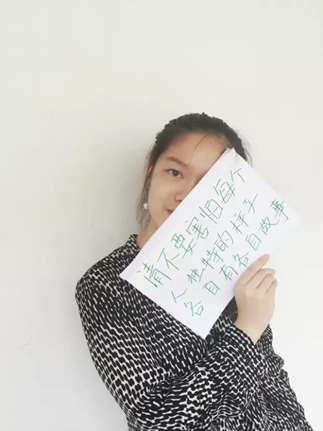 请不要害怕每个
人独特的样子
各自有各自故事